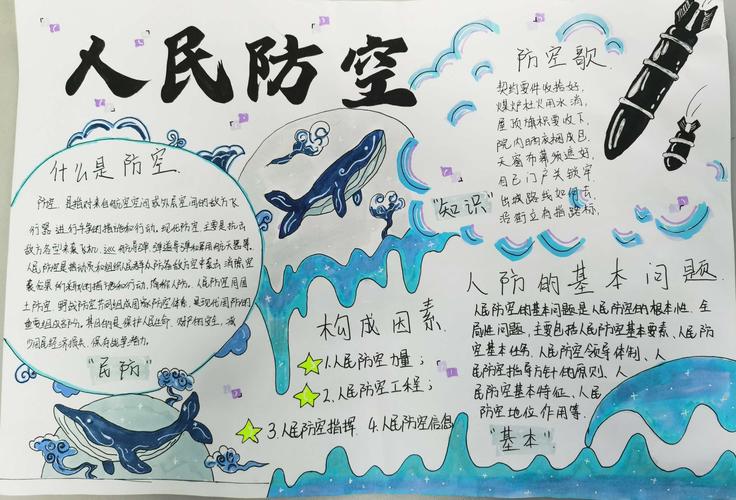 人民防空
什么是防空.
防空,是指对来自航空空间或外层空间的敌方飞
行器进行斗争的措施和行动.现代防空主要是抗击
敌方各型来袭飞机、巡航导弹、弹道导弹和军用航天器等.
人民防空是动员和组织人民群众防备敌方空中袭击、消除空
袭后果所采取的措施和行动,简称人防。人民防空同国
土防空、野战防空共同组成国家防空体系,是现代国防的
重要组成部分。其目的是保护人民生命、财产的安全,减
少国民经济损失、保存战争潜力。
"民防"
构成因素.
1.人民防空力量;
2.人民防空工程;
3.人民防空指挥. 4.人民防空信息
防空歌.
契约要件收拾好,
煤炉灶火用水浇,
屋顶旗帜要收下,
院内晒衣捆成包,
天窗布幕须遮好,
自己门户关锁牢,
出城路线如何去,
沿街立有指路标,
"知识"
人防的基本问题.
人民防空的基本问题是人民防空的根本性、全
局性问题,主要包括人民防空基本要素、人民防
空基本任务、人民防空领导体制、人
民防空指导方针和原则、人
民防空基本特征、人民
防空地位作用等.
"基本"